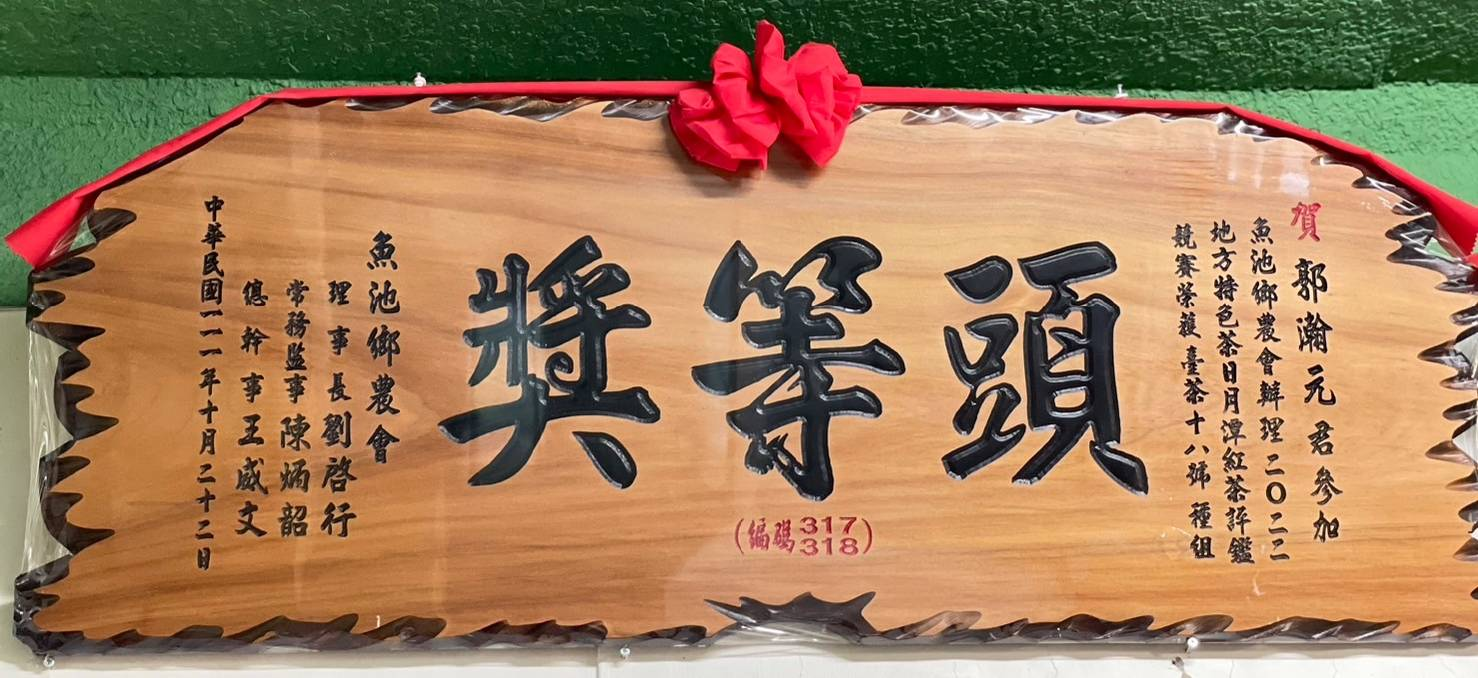 賀 郭瀚元君參加
魚池鄉農會辦理二〇二二
地方特色茶日月潭紅茶評鑑
競賽榮獲臺茶十八號種組
頭等獎
(編碼317
318)
魚池鄉農會
理事長劉啓行
常務監事陳炳韶
總幹事王威文
中華民國一一一年十月二十二日